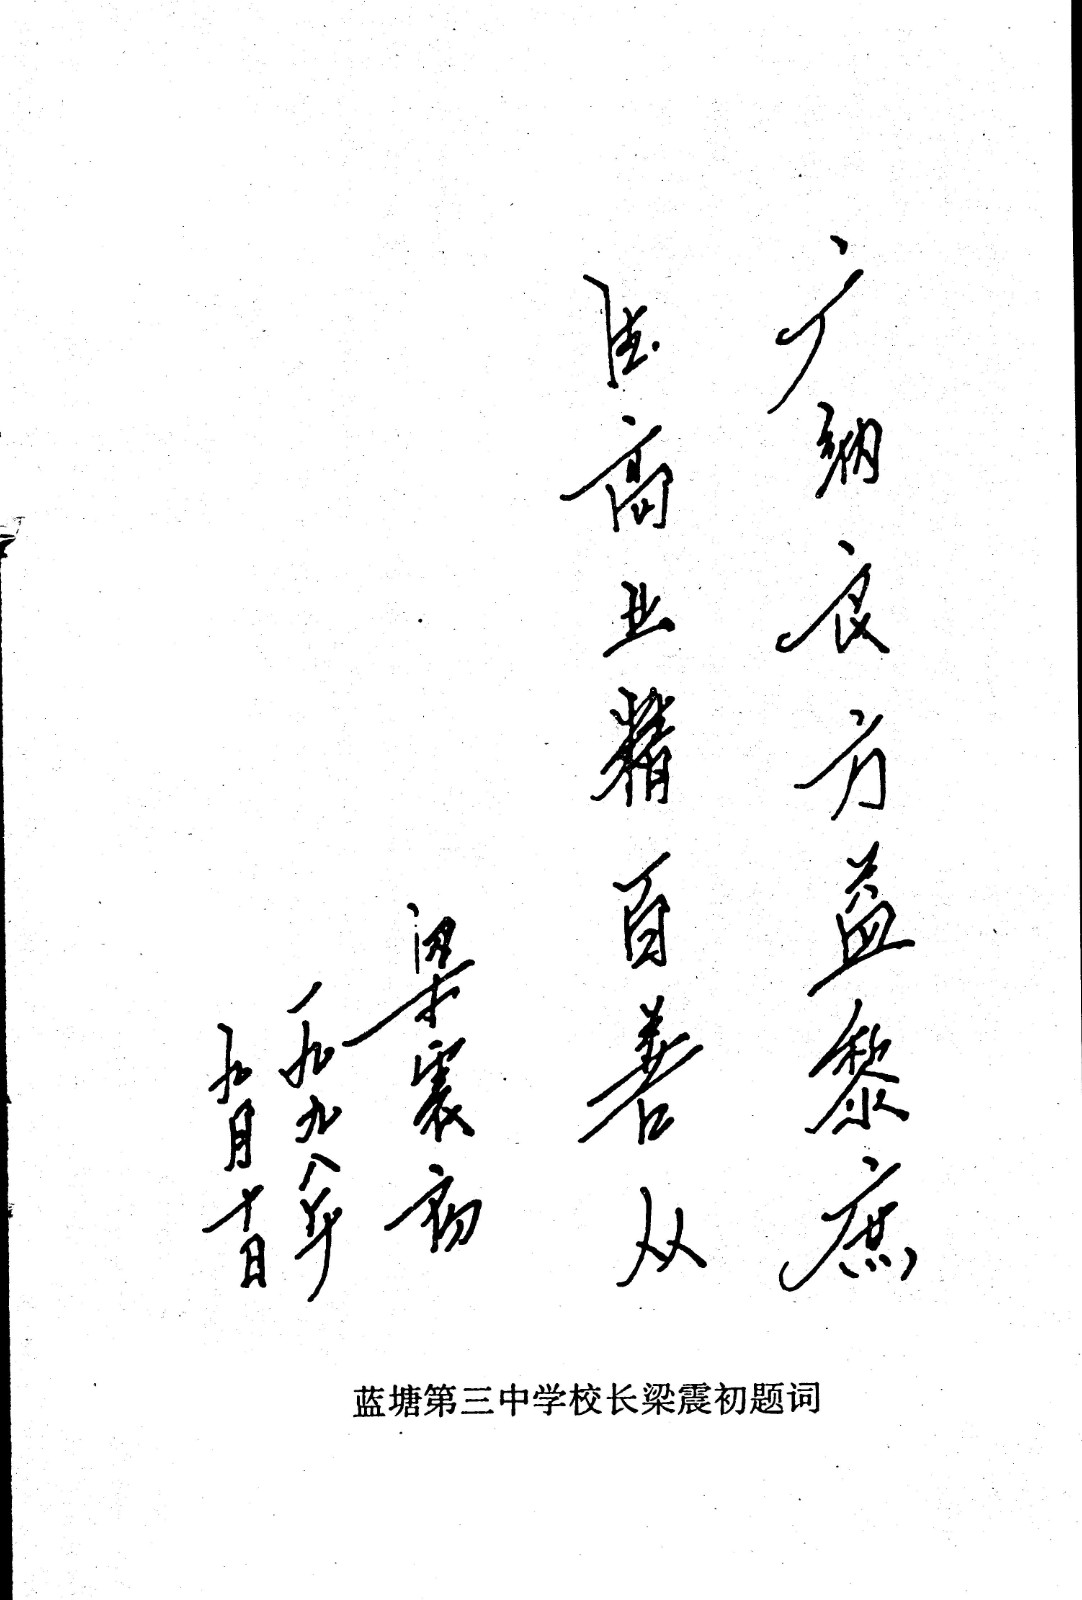 广纳良方益黎庶
医高业精百善从
梁震初
一九九八年
九月十日
蓝塘第三中学校长梁震初题词